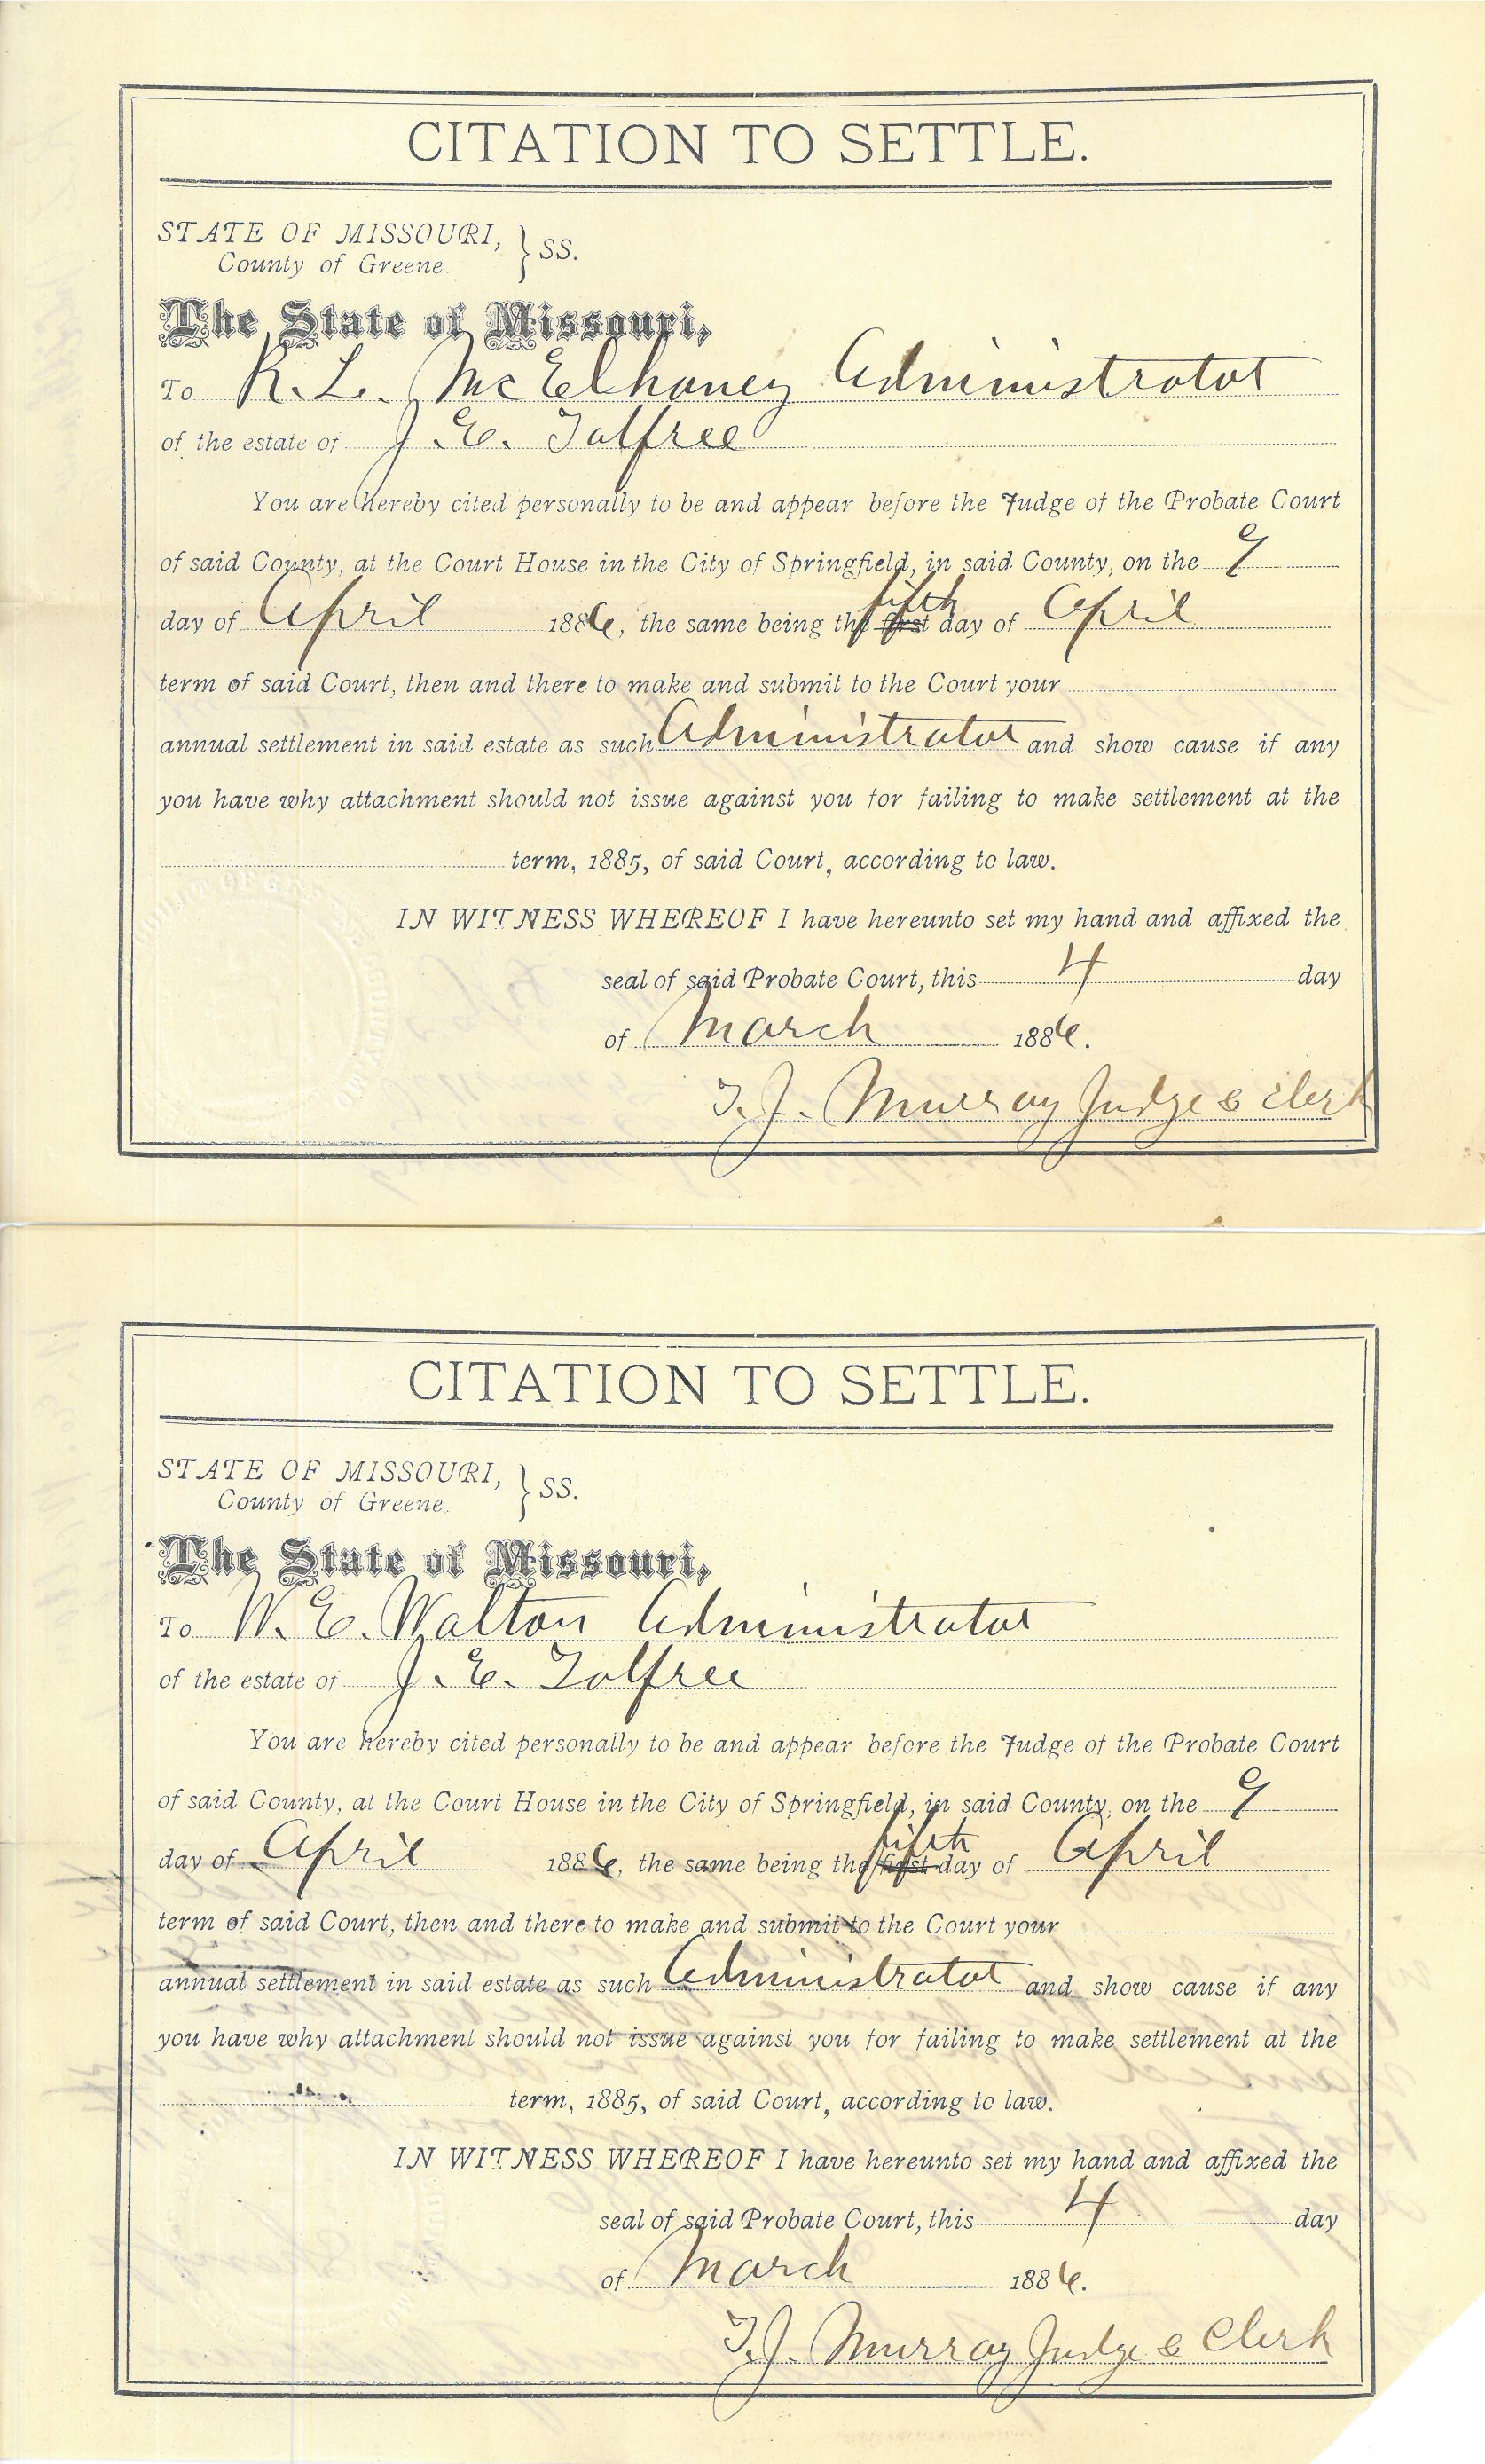 CITATION TO SETTLE.
STATE OF MISSOURI, } SS.
County of Greene.
The State of Missouri,
To R. L. McElhaney Administrator
of the estate of J. E. Tolfree
You are hereby cited personally to be and appear before the Judge of the Probate Court
of said County, at the Court House in the City of Springfield, in said County, on the 9
day of April 1886, the same being the first fifth day of April
term of said Court, then and there to make and submit to the Court your
annual settlement in said estate as such Administrator and show cause if any
you have why attachment should not issue against you for failing to make settlement at the
term, 1885, of said Court, according to law.
IN WITNESS WHEREOF I have hereunto set my hand and affixed the
seal of said Probate Court, this 4 day
of March 1886.
T. J. Murray Judge & Clerk
CITATION TO SETTLE.
STATE OF MISSOURI, } SS.
County of Greene.
The State of Missouri,
To W. E. Walton Administrator
of the estate of J. E. Tolfree
You are hereby cited personally to be and appear before the Judge of the Probate Court
of said County, at the Court House in the City of Springfield, in said County, on the 9
day of April 1886, the same being the first fifth day of April
term of said Court, then and there to make and submit to the Court your
annual settlement in said estate as such Administrator and show cause if any
you have why attachment should not issue against you for failing to make settlement at the
term, 1885, of said Court, according to law.
IN WITNESS WHEREOF I have hereunto set my hand and affixed the
seal of said Probate Court, this 4 day
of March 1886.
T. J. Murray Judge & Clerk